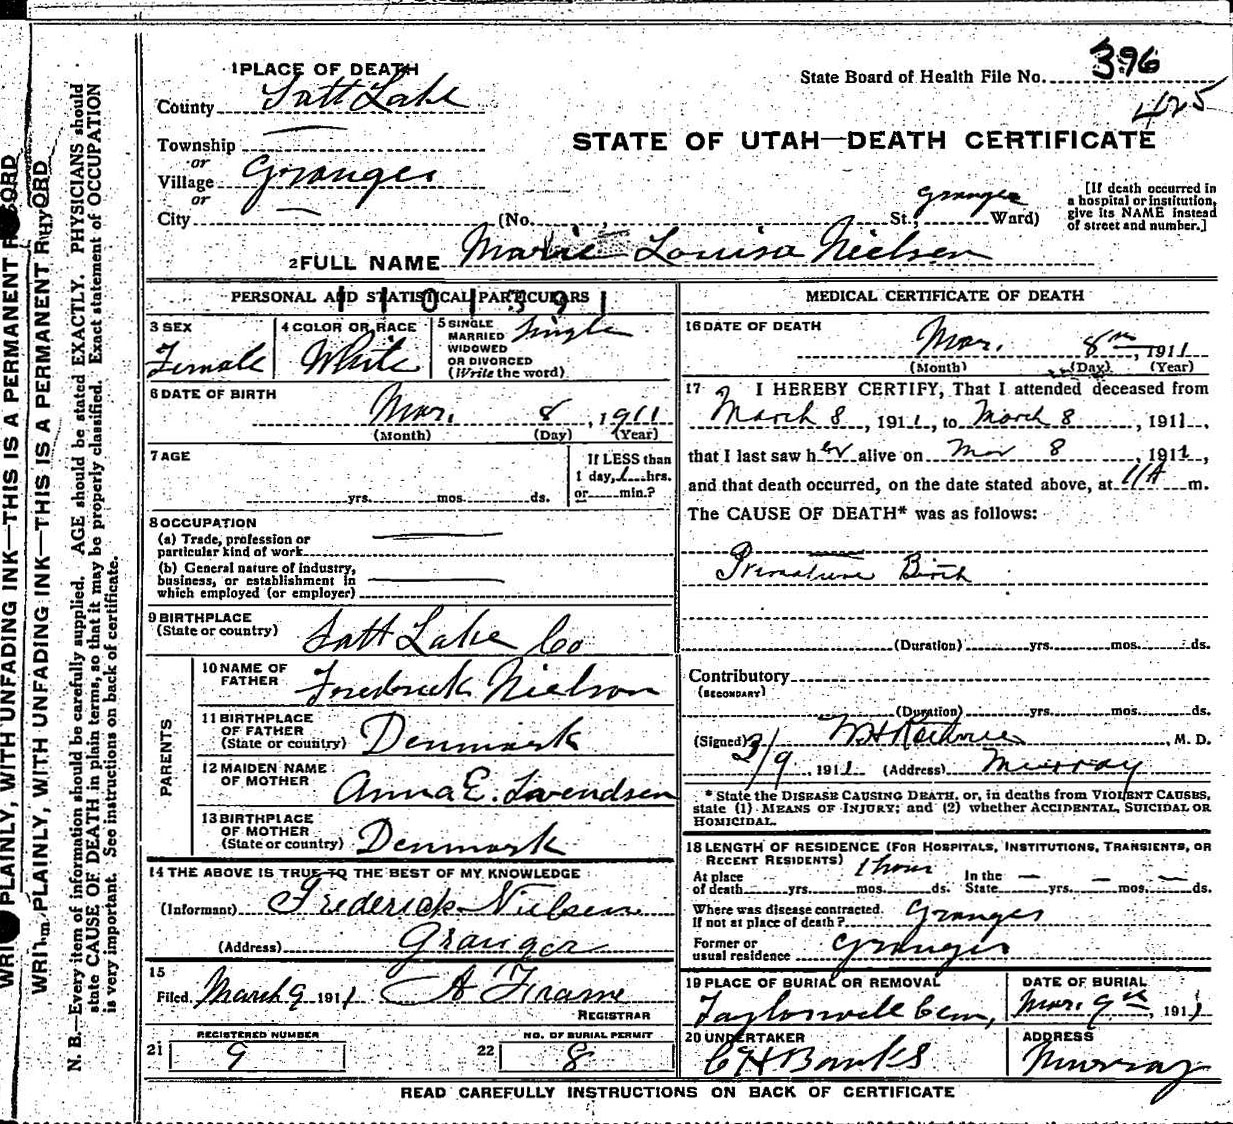 1 PLACE OF DEATH
State Board of Health File No. 396
425
County Salt Lake
STATE OF UTAH—DEATH CERTIFICATE
Township
or
Village Granger
or
City (No. , St., Granger Ward)
[If death occurred in
a hospital or institution,
give its NAME instead
of street and number.]
2 FULL NAME Marie Louisa Nielsen
PERSONAL AND STATISTICAL PARTICULARS
1101391
3 SEX
Female
4 COLOR OR RACE
White
5 SINGLE
MARRIED
WIDOWED
OR DIVORCED
(Write the word)
Single
6 DATE OF BIRTH
Mar. 8, 1911
(Month) (Day) (Year)
7 AGE
yrs. mos. ds.
If LESS than
1 day, 1 hrs.
or min.?
8 OCCUPATION
(a) Trade, profession or
particular kind of work
(b) General nature of industry,
business, or establishment in
which employed (or employer)
9 BIRTHPLACE
(State or country) Salt Lake Co
PARENTS
10 NAME OF
FATHER Frederick Nielson
11 BIRTHPLACE
OF FATHER
(State or country) Denmark
12 MAIDEN NAME
OF MOTHER Anna E. Svendsen
13 BIRTHPLACE
OF MOTHER
(State or country) Denmark
14 THE ABOVE IS TRUE TO THE BEST OF MY KNOWLEDGE
(Informant) Frederick Nielsen
(Address) Granger
15
Filed March 9 1911 A Frame
REGISTRAR
REGISTERED NUMBER
21 9
NO. OF BURIAL PERMIT
22 8
MEDICAL CERTIFICATE OF DEATH
16 DATE OF DEATH
Mar. 8th, 1911
(Month) (Day) (Year)
17 I HEREBY CERTIFY, That I attended deceased from
March 8, 1911, to March 8, 1911,
that I last saw her alive on Mar 8, 1911,
and that death occurred, on the date stated above, at 11 A m.
The CAUSE OF DEATH* was as follows:
Premature Birth
(Duration) yrs. mos. ds.
Contributory
(SECONDARY)
(Duration) yrs. mos. ds.
(Signed) W H , M. D.
3/9 1911 (Address) Murray
* State the DISEASE CAUSING DEATH, or, in deaths from VIOLENT CAUSES,
state (1) MEANS OF INJURY; and (2) whether ACCIDENTAL, SUICIDAL OR
HOMICIDAL.
18 LENGTH OF RESIDENCE (FOR HOSPITALS, INSTITUTIONS, TRANSIENTS, OR
RECENT RESIDENTS) 1 hour
At place
of death yrs. mos. ds.
In the
State yrs. mos. ds.
Where was disease contracted.
If not at place of death? Granger
Former or
usual residence Granger
19 PLACE OF BURIAL OR REMOVAL
Taylorsville Cem,
DATE OF BURIAL
Mar. 9th, 1911
20 UNDERTAKER
C H Banks
ADDRESS
Murray
READ CAREFULLY INSTRUCTIONS ON BACK OF CERTIFICATE
PLAINLY, WITH UNFADING INK—THIS IS A PERMANENT RECORD
PLAINLY, WITH UNFADING INK—THIS IS A PERMANENT
N. B.—Every item of information should be carefully supplied. AGE should be stated EXACTLY. PHYSICIANS should
state CAUSE OF DEATH in plain terms, so that it may be properly classified. Exact statement of OCCUPATION
is very important. See instructions on back of certificate.